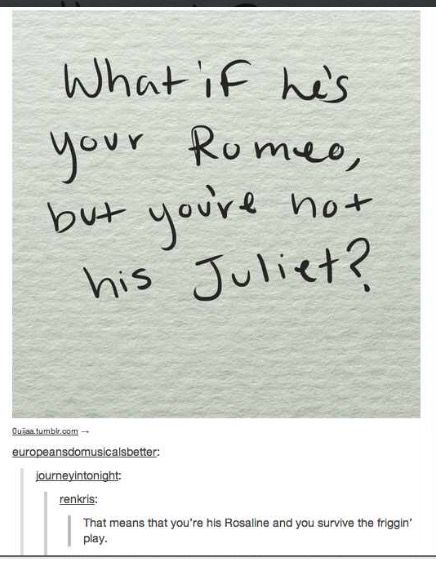 What if he's
your Romeo,
but you're not
his Juliet?
0uiiaa.tumblr.com →
europeansdomusicalsbetter:
journeyintonight:
renkris:
That means that you're his Rosaline and you survive the friggin'
play.